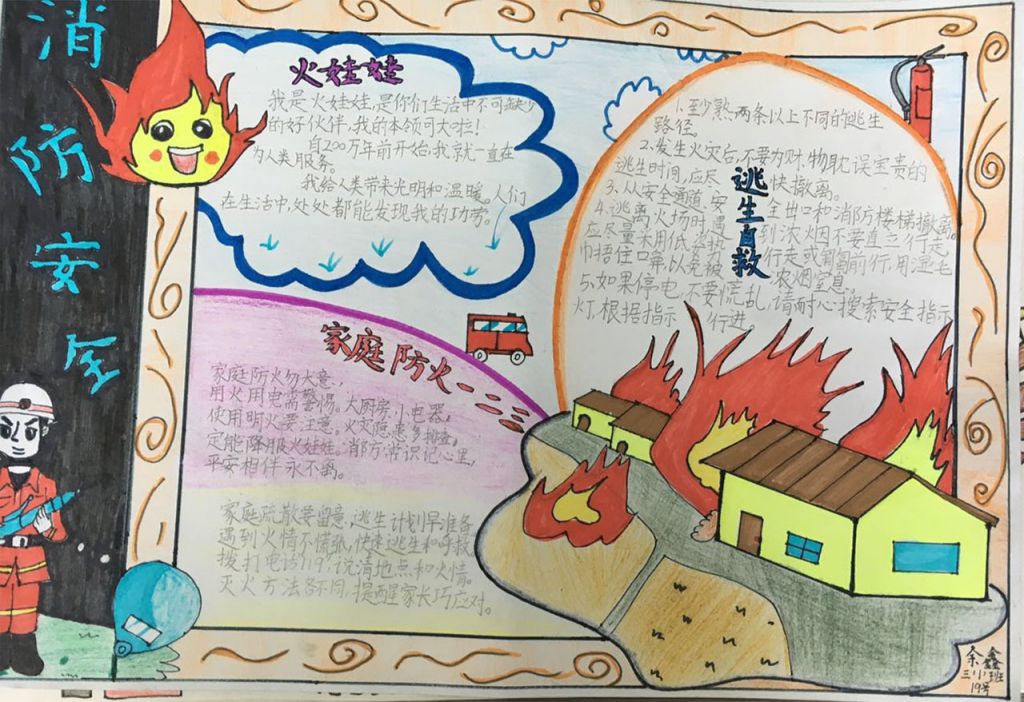 消防安全
火娃娃
我是火娃娃,是你们生活中不可或缺少
的好伙伴,我的本领可大啦!
自200万年前开始,我就一直在
为人类服务。
我给人类带来光明和温暖。人们
在生活中,处处都能发现我的功劳。
家庭防火一二三
家庭防火勿大意,
用火用电需警惕。大厨房,小电器,
使用明火要注意。火灾隐患多排查,
定能降服火娃娃。消防常识记心里,
平安相伴永不离。
家庭疏散要留意,逃生计划早准备
遇到火情不慌张,快速逃生和呼救
拨打电话119,说清地点和火情。
灭火方法各不同,提醒家长巧应对。
逃生自救
1.至少熟两条以上不同的逃生
路径。
2.发生火灾后,不要为财物耽误宝贵的
逃生时间,应尽快撤离。
3.从安全通道、安全出口和消防楼梯撤离。
4.逃离火场时,遇到浓烟不要直立行走
应尽量采用低姿势行走或匍匐前行,用湿毛
巾捂住口鼻以免被浓烟窒息。
5.如果停电,不要慌乱,请耐心搜索安全指示
灯,根据指示行进。
余鑫
三小班
19号